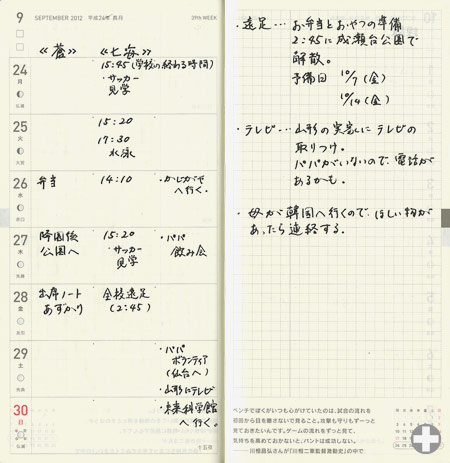 9 SEPTEMBER 2012 平成24年 長月 39th WEEK
《蒼》 《七海》
24 月
15:45(学校の終わる時間)
・サッカー
見学
25 火
15:20
17:30
水泳
26 水
弁当 14:10 ・かじがや
へ行く。
27 木
降園後 15:20 ・パパ
公園へ ・サッカー 飲み会
見学
28 金
出席ノート 全校遠足
あずかり (2:45)
29 土
・パパ
ボランティア
(仙台へ)
・山形にテレビ
30 日
・未来科学館
へ行く。
十五夜
・遠足…お弁当とおやつの準備
2:45に成瀬台公園で
解散。
予備日 10/7(金)
10/14(金)
・テレビ…山形の実家にテレビの
取りつけ。
パパがいないので、電話が
あるかも。
・母が韓国へ行くので ほしい物が
あったら連絡する。
ベンチでぼくがいつも心がけていたのは、試合の流れを
見ておきたいんです。ゲームの流れをずっと見て、
気持ちを高めておかないと、バントは成功しない。